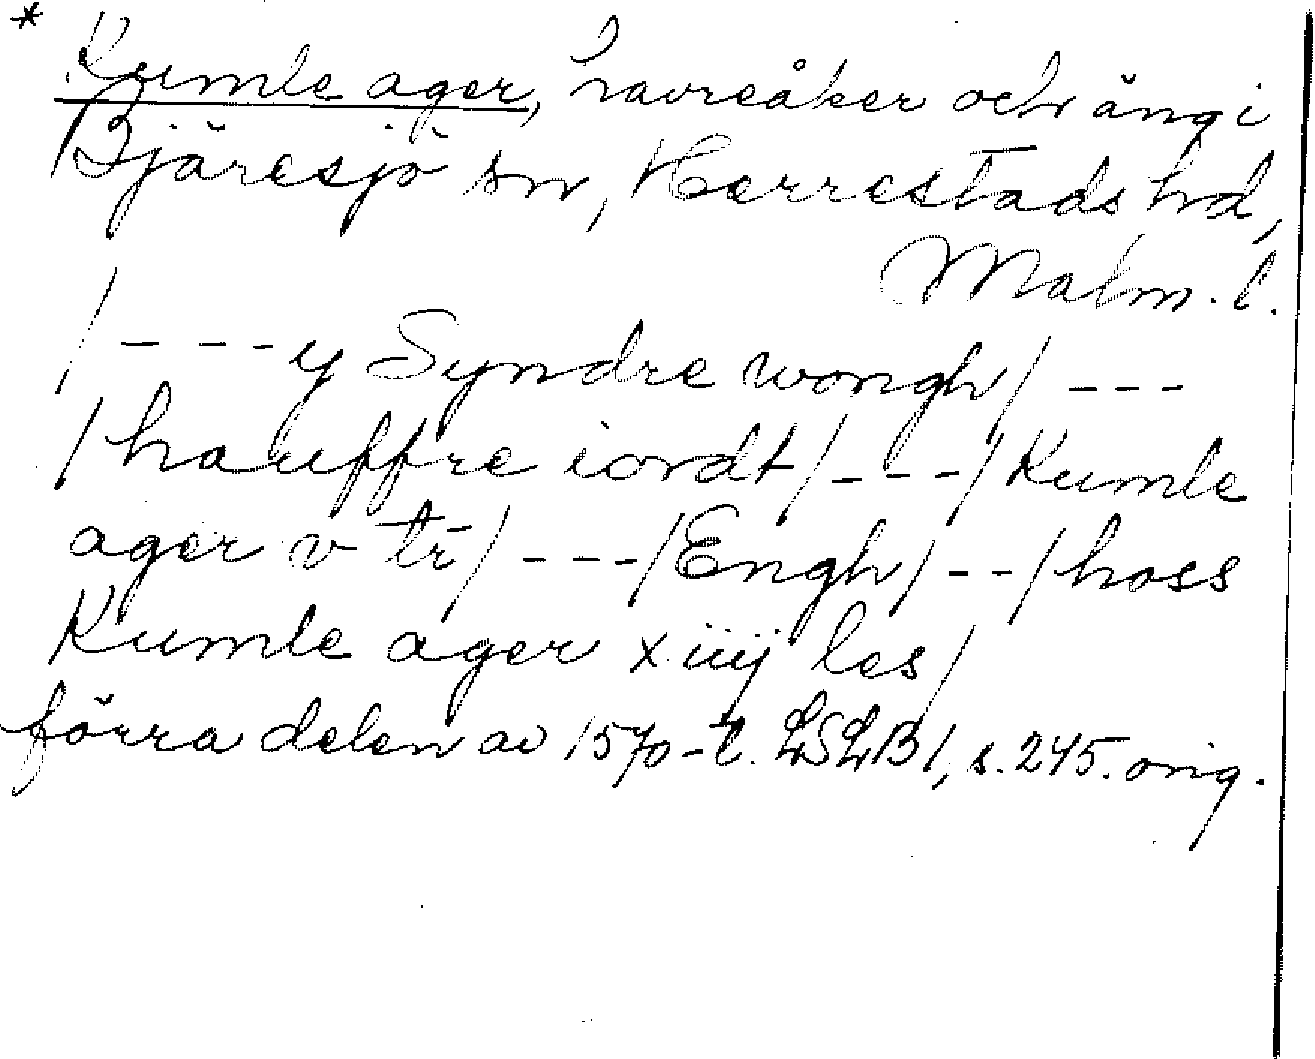 * Kumle ager, havreåker och äng i
Bjäresjö sn, Herrestads hd,
Malm. l.
/ - - - y Syndre wongh / - - -
/ hauffre iordt / - - - / Kumle
ager v tr̄ / - - - / Engh / - - / hoss
Kumle ager xiiij les /
förra delen av 1570-t. LSLB 1, s. 245. orig.